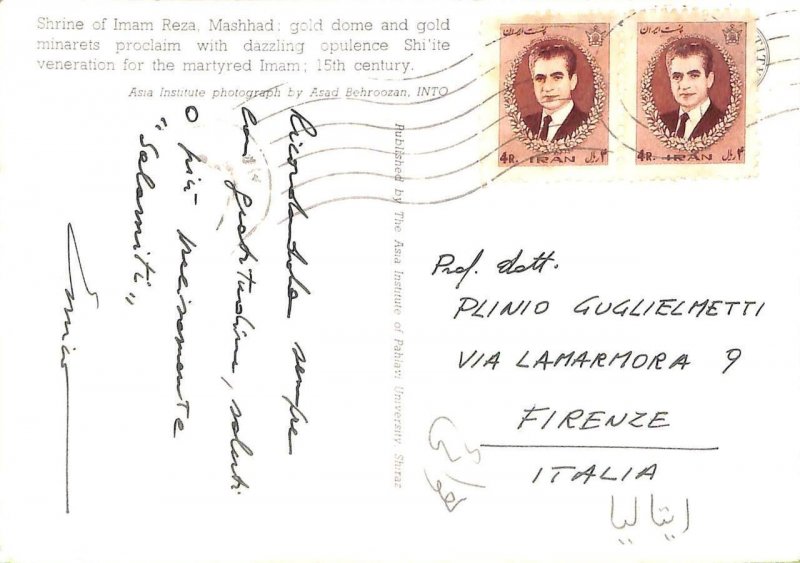 Shrine of Imam Reza, Mashhad: gold dome and gold
minarets proclaim with dazzling opulence Shi'ite
veneration for the martyred Imam; 15th century.
Asia Institute photograph by Asad Behroozan, INTO
Ricordandola sempre
con gratitudine, saluti
o più precisamente
"Salamiti„
Enrico
Published by The Asia Institute of Pahlavi University, Shiraz
پست ایران
4R. IRAN ۴ ریال
پست ایران
4R. IRAN ۴ ریال
Prof. dott.
PLINIO GUGLIELMETTI
VIA LAMARMORA 9
FIRENZE
ITALIA
ایتالیا
هوائی